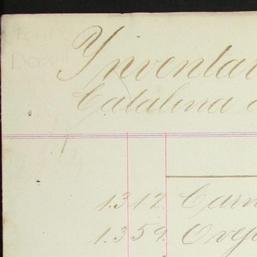 Inventar
Catalina
1.312 Carn
1.359 Ovej